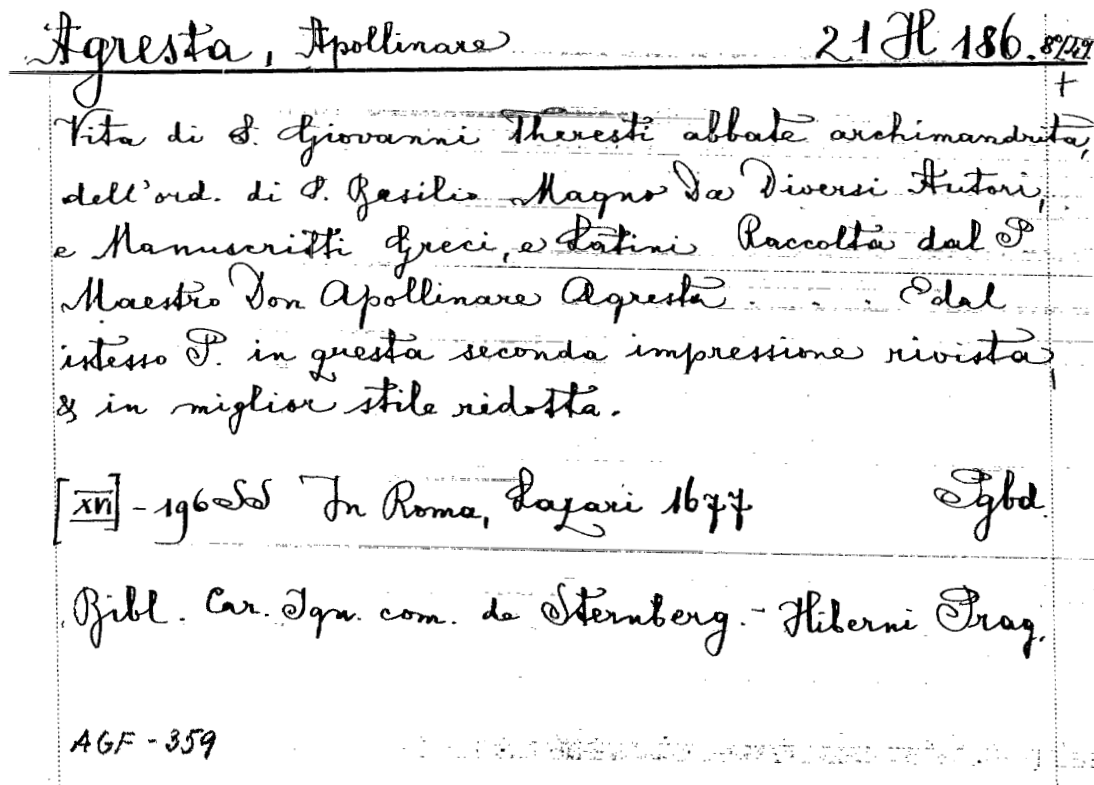 Agresta, Apollinare 21 H 186.
+
Vita di S. Giovanni Theresti abbate archimandrita,
dell'ord. di S. Basilio Magno Da Diversi Autori,
e Manuscritti Greci, e Latini Raccolta dal P.
Maestro Don Apollinare Agresta . . . Edal
istesso P. in questa seconda impressione rivista,
& in miglior stile ridotta.
[XVI] - 196 SS In Roma, Lazari 1677 Pgbd.
Bibl. Car. Ign. com. de Sternberg. - Hiberni Prag.
AGF - 359